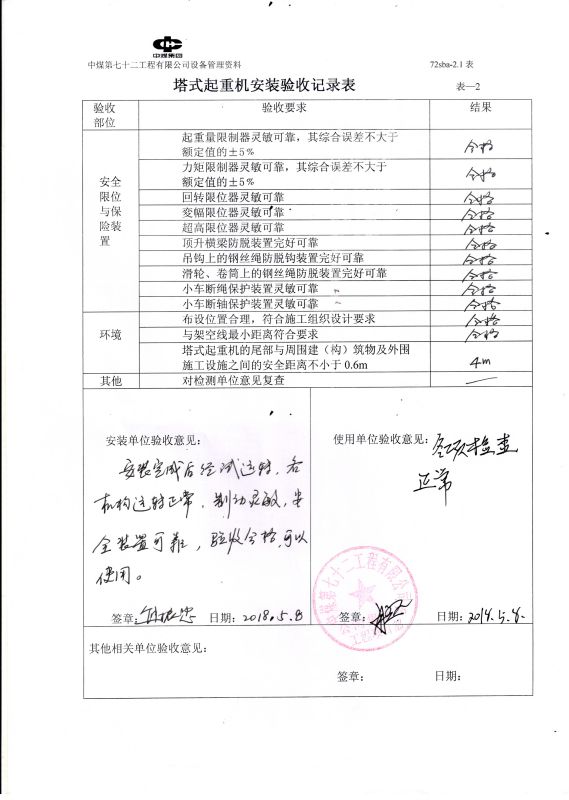 中煤集团
中煤第七十二工程有限公司设备管理资料
72sba-2.1 表
塔式起重机安装验收记录表
表—2
验收部位
验收要求
结果
安全限位与保险装置
起重量限制器灵敏可靠，其综合误差不大于
额定值的±5％
合格
力矩限制器灵敏可靠，其综合误差不大于
额定值的±5％
合格
回转限位器灵敏可靠
合格
变幅限位器灵敏可靠
合格
超高限位器灵敏可靠
合格
顶升横梁防脱装置完好可靠
合格
吊钩上的钢丝绳防脱钩装置完好可靠
合格
滑轮、卷筒上的钢丝绳防脱装置完好可靠
合格
小车断绳保护装置灵敏可靠
合格
小车断轴保护装置灵敏可靠
合格
环境
布设位置合理，符合施工组织设计要求
合格
与架空线最小距离符合要求
合格
塔式起重机的尾部与周围建（构）筑物及外围
施工设施之间的安全距离不小于 0.6m
4m
其他
对检测单位意见复查
—
安装单位验收意见：
安装完成后经试运转，各
机构运转正常，制动灵敏，安
全装置可靠，验收合格，可以
使用。
签章：
日期：2018.5.8
使用单位验收意见：各项检查
正常
中煤第七十二工程有限公司
签章：
日期：
其他相关单位验收意见：
签章：
日期：